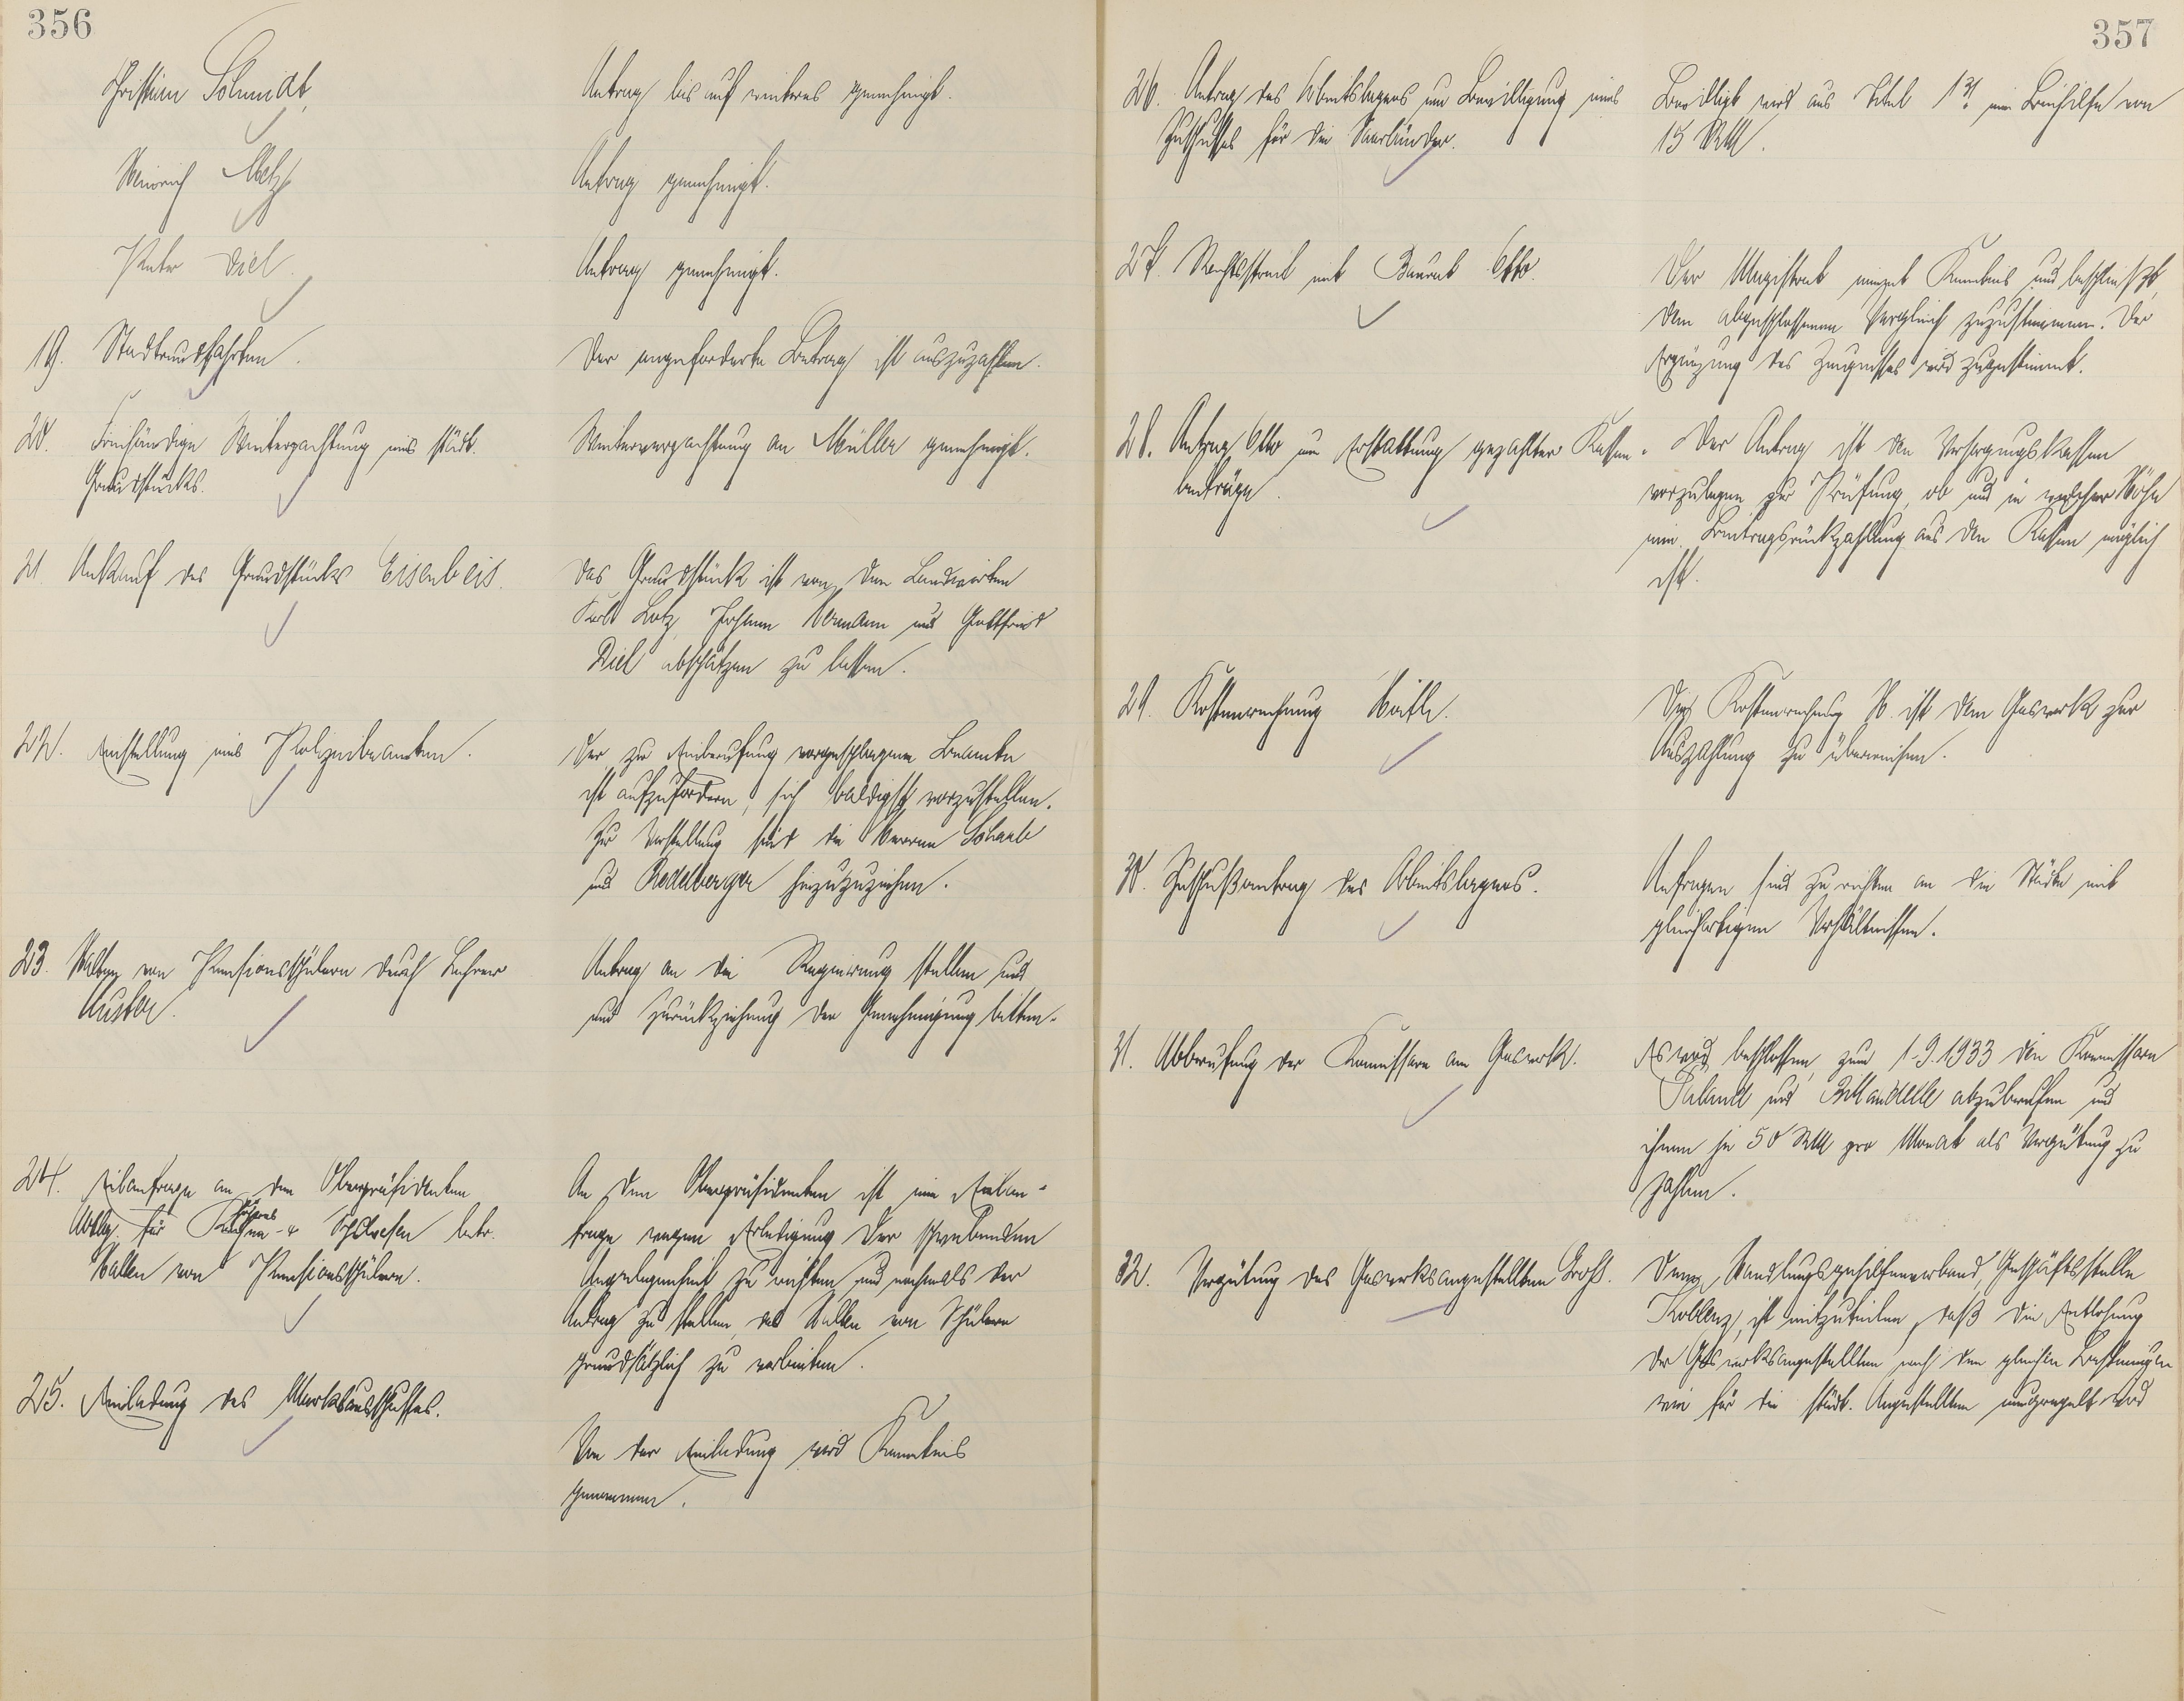 356
Christian Schmidt,
Antrag bis auf weiteres genehmigt.
Heinrich Metz
Antrag genehmigt.
Peter Diel.
Antrag genehmigt.
19. Stadtrundfahrten.
Der angeforderte Betrag ist auszuzahlen.
20. Freihändige Weiterpachtung eines städt.
Grundstücks.
Weiterverpachtung an Müller genehmigt.
21. Ankauf des Grundstücks Eisenbeis.
Das Grundstück ist von den Landwirten
Karl Lotz, Johann Hermann und Gottfried
Diel abschätzen zu lassen.
22. Einstellung eines Polizeibeamten.
Der zur Einberufung vorgeschlagene Beamte
ist aufzufordern, sich baldigst vorzustellen.
Zur Vorstellung sind die Herren Schaab
und Redelberger hinzuzuziehen.
23. Halten von Pensionsschülern durch Lehrer
Antrag an die Regierung stellen und
um Zurückziehung der Genehmigung bitten.
24. Eilanfrage an den Oberpräsidenten
Abtlg. für höheres Schulwesen betr.
Halten von Pensionsschülern.
An den Oberpräsidenten ist eine Eilan-
frage wegen Erledigung der schwebenden
Angelegenheit zu richten und nochmals der
Antrag zu stellen, das Halten von Schülern
grundsätzlich zu verbieten.
25. Einladung des Werksausschusses.
Von der Einladung wird Kenntnis
genommen.
357
26. Antrag des Arbeitslagers um Bewilligung eines
Zuschusses für die Saarländer.
Bewilligt wird aus Titel eine Beihilfe von
15 RM.
27. Rechtsstreit mit Baurat Otto.
Der Magistrat nimmt Kenntnis und beschließt,
dem abgeschlossenen Vergleich zuzustimmen. Der
Ergänzung des Zeugnisses wird zugestimmt.
28. Antrag Otto um Erstattung gezahlter Kassen-
beiträge.
Der Antrag ist den Versorgungskassen
vorzulegen zur Prüfung, ob und in welcher Höhe
eine Beitragsrückzahlung aus den Kassen möglich
ist.
29. Kostenrechnung
Die Kostenrechnung H. ist dem Gaswerk zur
Auszahlung zu überweisen.
30. Zuschußantrag des Arbeitslagers.
Anfragen sind zu richten an die Städte mit
gleichartigen Verhältnissen.
31. Abberufung der Kommissare am Gaswerk.
Es wird beschlossen, zum 1.9.1933 die Kommissare
und abzuberufen und
ihnen je 50 RM pro Monat als Vergütung zu
zahlen.
32. Vergütung des Gaswerksangestellten Groß.
Dem Handlungsgehilfenverband, Geschäftsstelle
Koblenz, ist mitzuteilen, daß die Entlohnung
der Gaswerksangestellten nach den gleichen Bestimmungen
wie für die städt. Angestellten neugeregelt wird